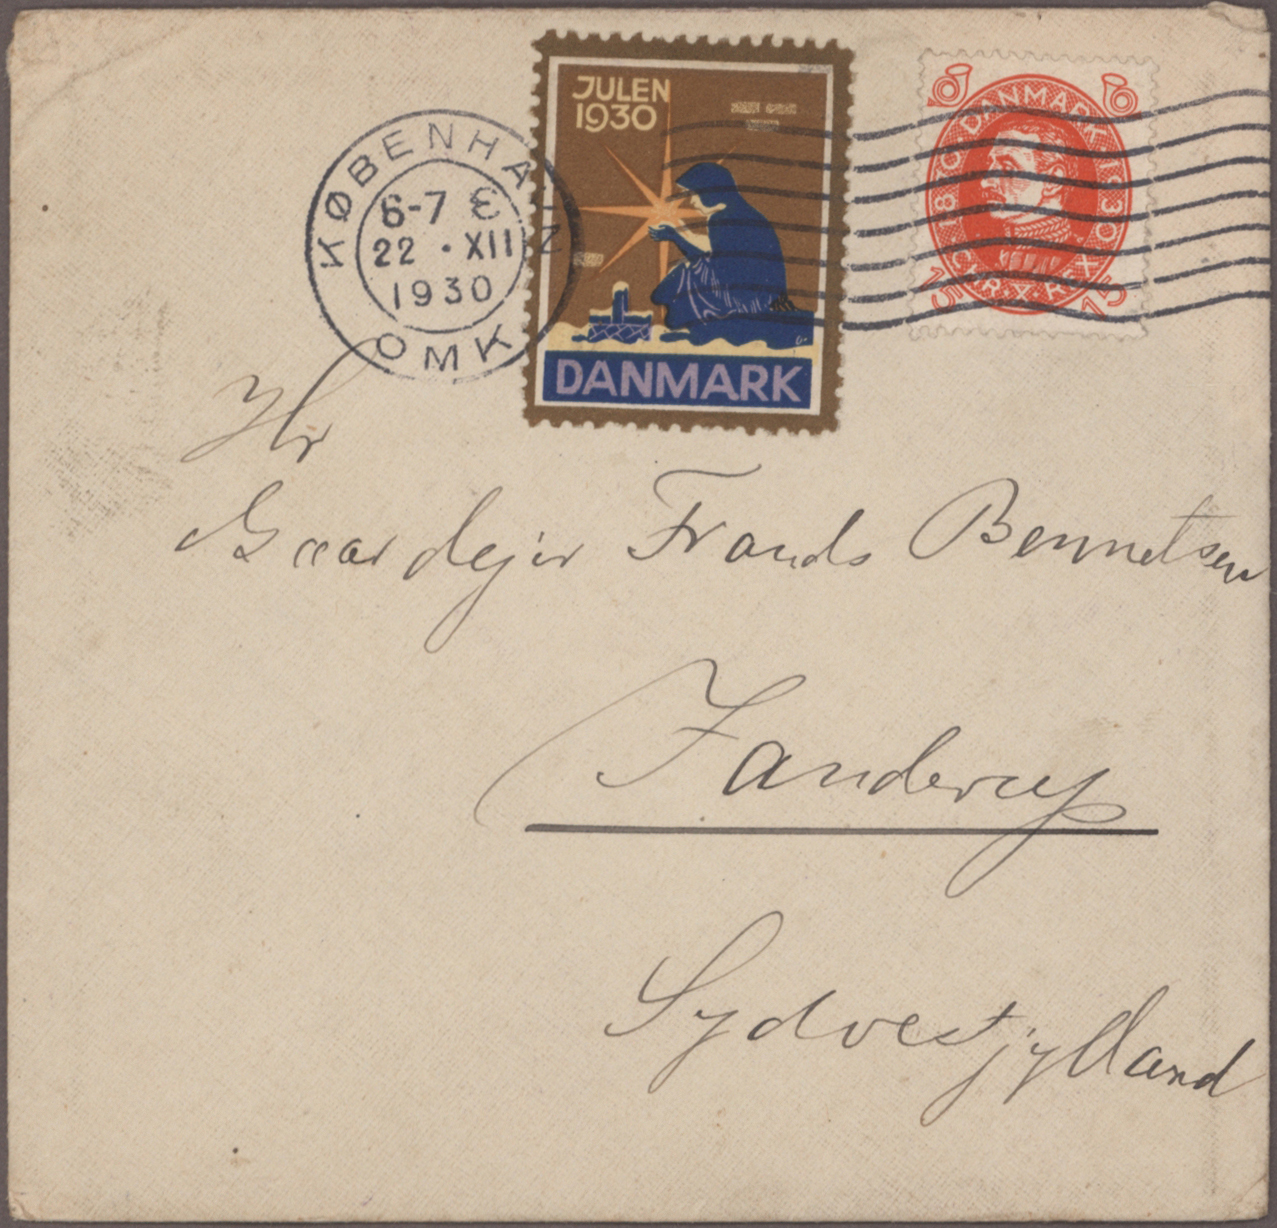 KØBENHAVN
6-7 E
22 · XII
1930
OMK
JULEN
1930
DANMARK
1870 · DANMARK · 1930
15 15
CHR · X · RX
Hr
Gaardejer Frands Bennetsen
Janderup
Sydvestjylland